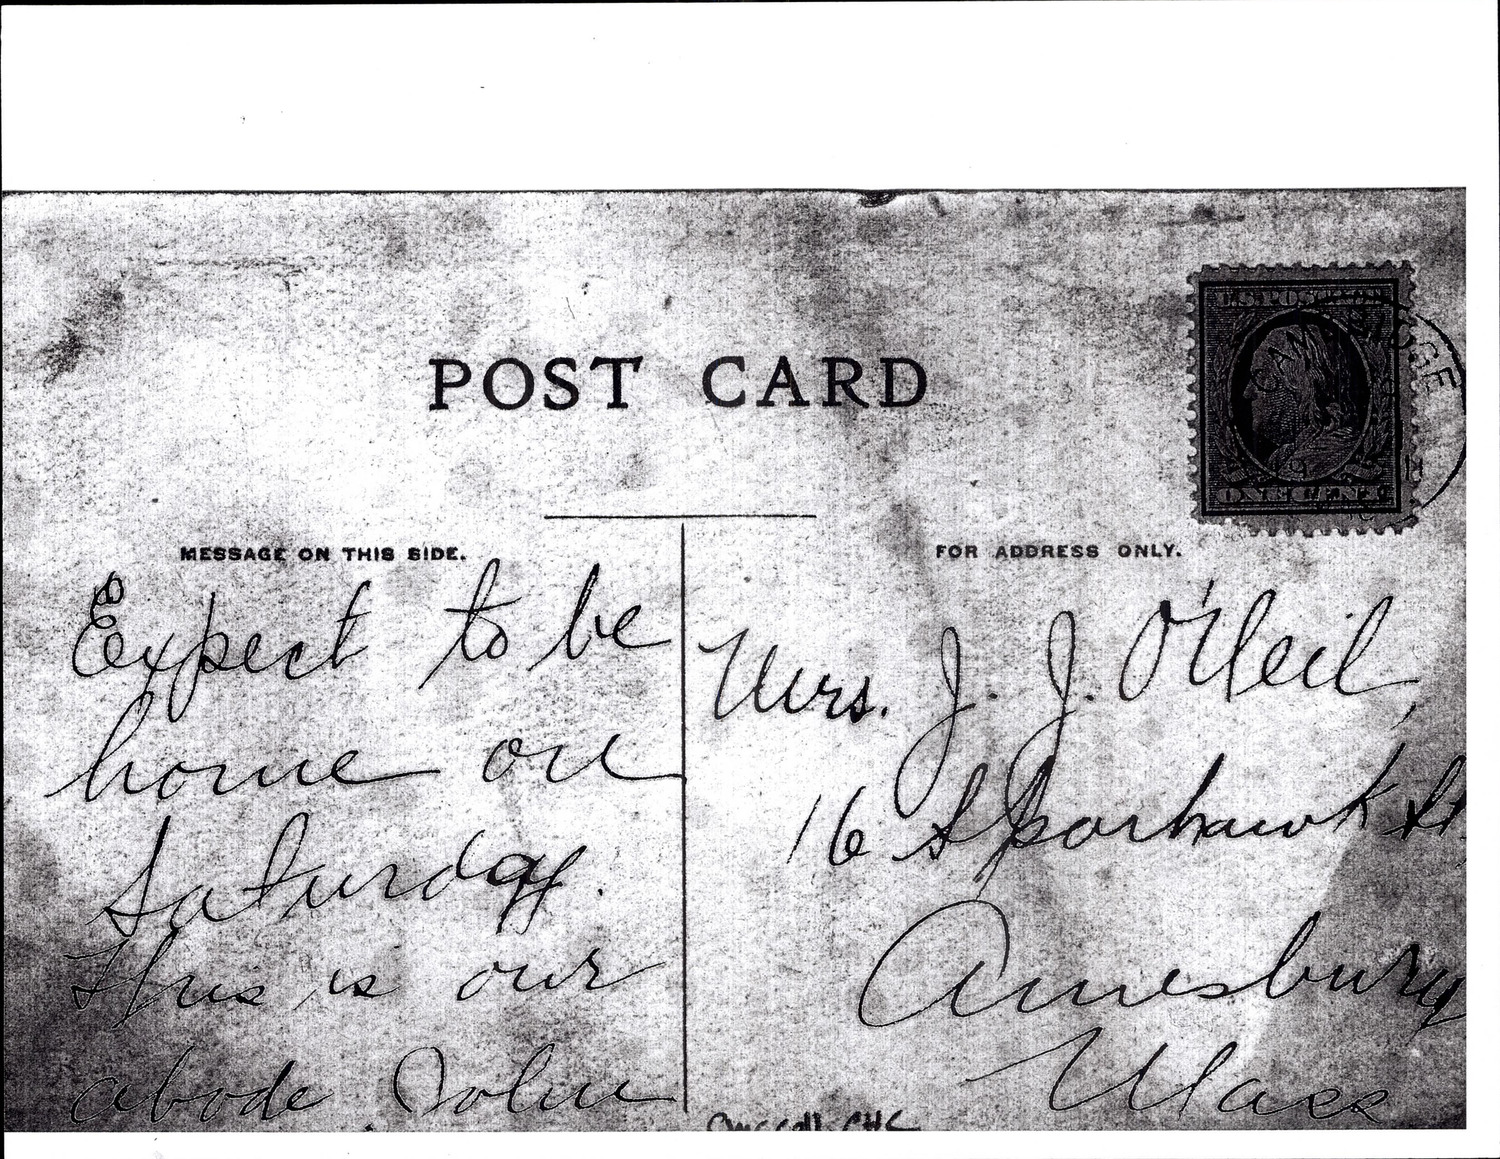 U.S. POSTAGE
CAMBRIDGE
ONE CENT
POST CARD
MESSAGE ON THIS SIDE.
FOR ADDRESS ONLY.
Expect to be
home on
Saturday.
This is our
abode John
Mrs. J. J. O'Neil,
16 Sparhawk St
Amesbury
Mass